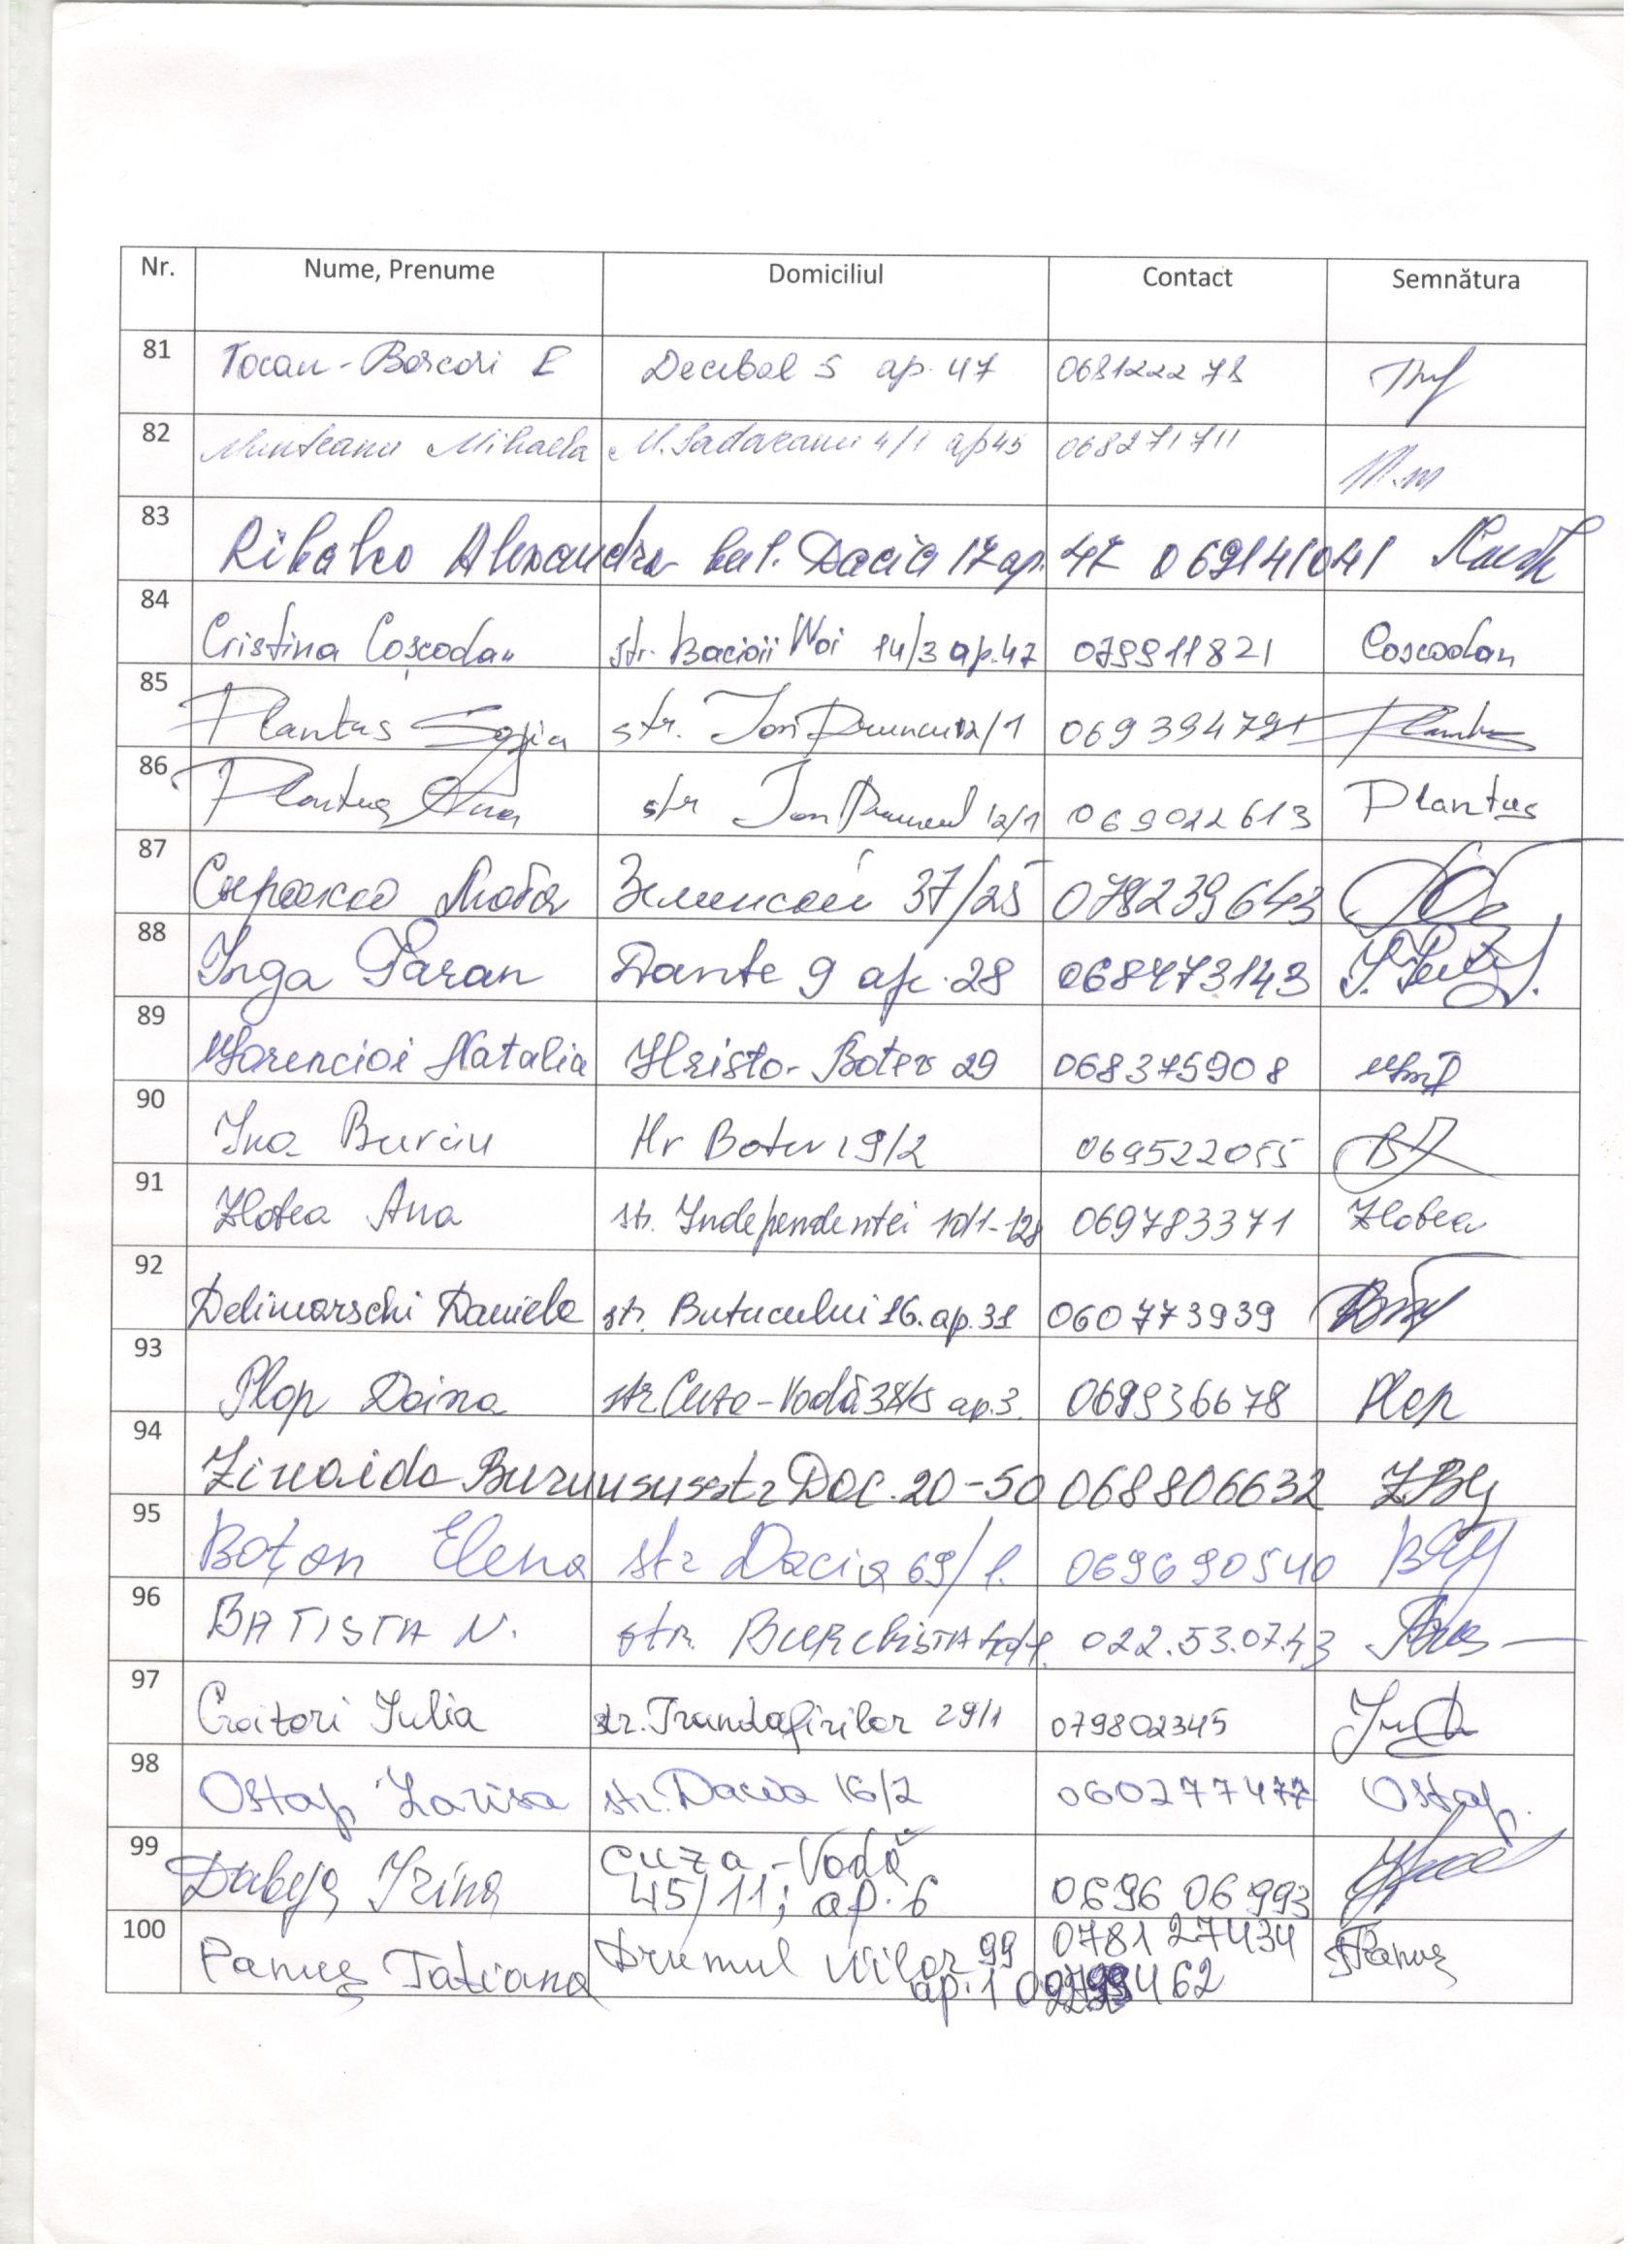 Nr. Nume, Prenume Domiciliul Contact Semnătura
81 Tocan-Borcori E Decebal 5 ap. 47 068122278
82 Munteanu Mihaela M. Sadoveanu 4/1 ap 45 068271711 M.m
83 Ribalco Alexandra bul. Dacia 17 ap. 47 069141041
84 Cristina Coșcodan str. Bacioii Noi 14/3 ap. 47 079911821 Coscodan
85 Plantus Sofia str. Ion 12/1 069394791 Plantus
86 Plantus Ana str Ion 12/1 069022613 Plantus
87 Люба 37/25 079239643
88 Inga Țaran Dante 9 ap. 28 068473143
89 Morencioi Natalia Hristo-Botev 29 068375908
90 Ina Burciu Hr Botev 19/2 069522055
91 Zlotea Ana str. Independentei 10/1-128 069783371 Zlotea
92 Delimarschi Daniela str. Butucului 16. ap. 31 060773939
93 Plop Doina str. Cuza-Vodă ap. 3. 069936678 Plop
94 Zinaida str 20-50 068806632
95 Boțan Elena str Dacia 69/1. 069690540
96 BATISTA N. str. 022.53.07.43
97 Croitori Iulia str. Trandafirilor 29/1 079802345
98 Ostap Larisa str. Dacia 16/2 060277477 Ostap.
99 Dabija Irina Cuza-Vodă
45/11; ap. 6 069606993
100 Panuș Tatiana Drumul Viilor 99 078127434 Panuș
ap. 1 462